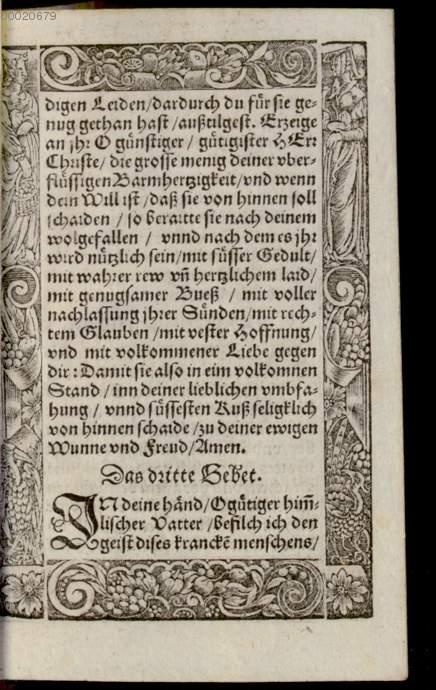 00020679
digen Leiden/dardurch du für sie ge-
nug gethan hast/außtilgest. Erzeige
an jhr O günstiger/ gütigister HErr
Christe/ die grosse menig deiner vber-
flüssigen Barmhertzigkeit/vnd wenn
dein Will ist/daß sie von hinnen soll
schaiden / so beraitte sie nach deinem
wolgefallen / vnnd nach dem es jhr
wird nützlich sein/mit süsser Gedult/
mit wahrer rew vñ hertzlichem laid/
mit genugsamer Bueß / mit voller
nachlassung jhrer Sünden/mit rech-
tem Glauben /mit vester Hoffnung/
vnd mit volkommener Liebe gegen
dir: Damit sie also in eim volkomnen
Stand/ inn deiner lieblichen vmbfa-
hung/ vnnd süssesten Kuß seligklich
von hinnen schaide /zu deiner ewigen
Wunne vnd Freud/Amen.
Das dritte Gebet.
IN deine händ/O gütiger him̃-
lischer Vatter /befilch ich den
geist dises kranckẽ menschens/